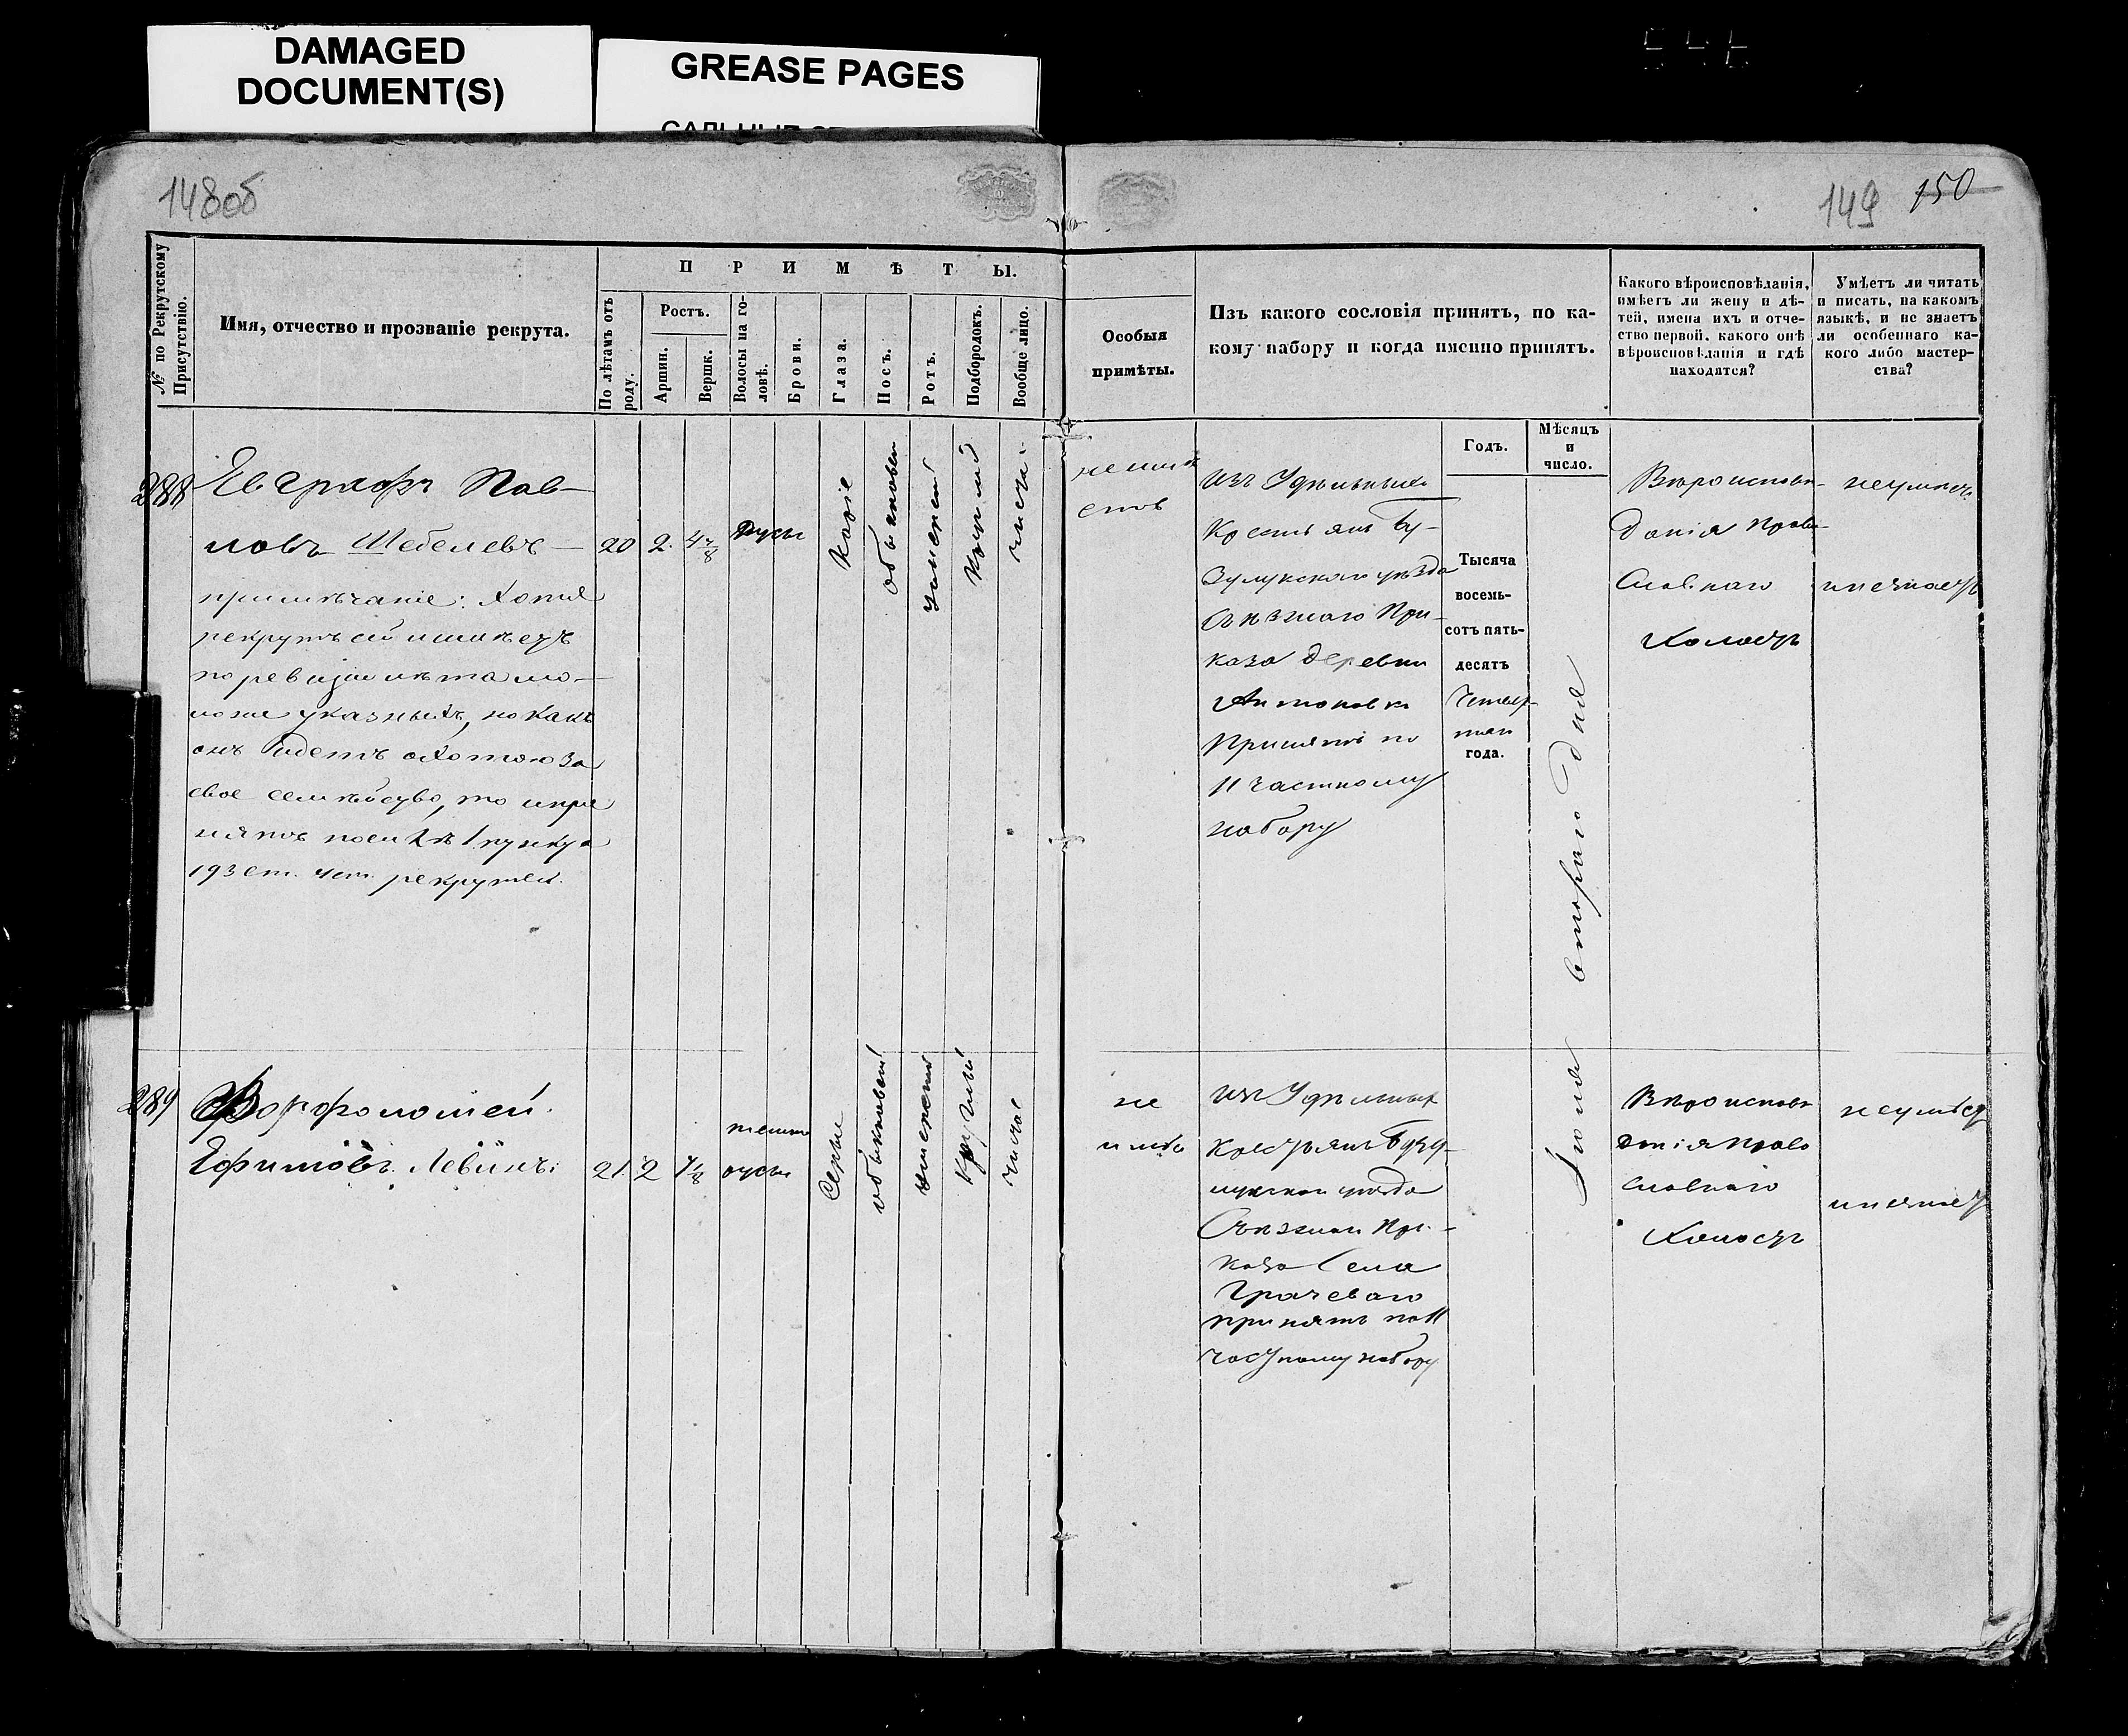 DAMAGED
DOCUMENT(S)
GREASE PAGES
148об
149 150
№ по Рекрутскому Присутствію.
Имя, отчество и прозваніе рекрута.
ПРИМѢТЫ.
По лѣтамъ отъ роду.
Ростъ.
Аршин.
Вершк.
Волосы на головѣ.
Брови.
Глаза.
Носъ.
Ротъ.
Подбородокъ.
Вообще лицо.
Особыя
примѣты.
Изъ какого сословія принятъ, по ка-
кому набору и когда именно принятъ.
Какого вѣроисповѣданія,
имѣетъ ли жену и дѣ-
тей, имена ихъ и отче-
ство первой, какого онѣ
вѣроисповѣданія и гдѣ
находятся?
Умѣетъ ли читать
и писать, на какомъ
языкѣ, и не знаетъ
ли особеннаго ка-
кого либо мастер-
ства?
Годъ.
Мѣсяцъ
и
число.
288
Евграфъ Пав-
ловъ Шебелевъ
примѣчаніе: Хотя
рекрутъ сей имѣетъ
по ревизіи лѣта мо-
ложе указныхъ, но какъ
онъ идетъ охотою за
свое семѣйство, то и при
нятъ по силѣ 1 пункта
193 ст. уст. рекрутск.
20
2.
4 7/8
Русы
Каріе
обыкновен
умерен
Круглый
чисто
неимѣ
етъ
изъ Удѣльныхъ
Крестьянъ Бу-
зулукскаго уѣзда
Съѣзжаго При-
каза деревни
Антоновки
Принятъ по
11 частному
набору
Тысяча
восемь-
сотъ пять-
десятъ
Четвер-
таго
года.
Іюня втораго дня
Вѣроисповѣ-
данія Право-
Славнаго
Холостъ
неумѣетъ
инезнаетъ
289
Ворфоломей
Ефимовъ Левинъ
21.
2
7/8
темно
русы
Серые
обыкновен
умерен
Круглый
чистое
не
имѣе
изъ Удѣльныхъ
Крестьянъ Бузу-
лукскаго уѣзда
Съѣзжаго При-
каза Села
Грачеваго
принятъ по 11
частному набору
Вѣроисповѣ
данія Право
славнаго
Холостъ
неумѣетъ
инезнаетъ